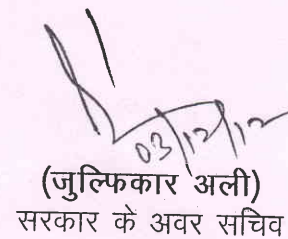 03/12/12
(जुल्फिकार अली)
सरकार के अवर सचिव